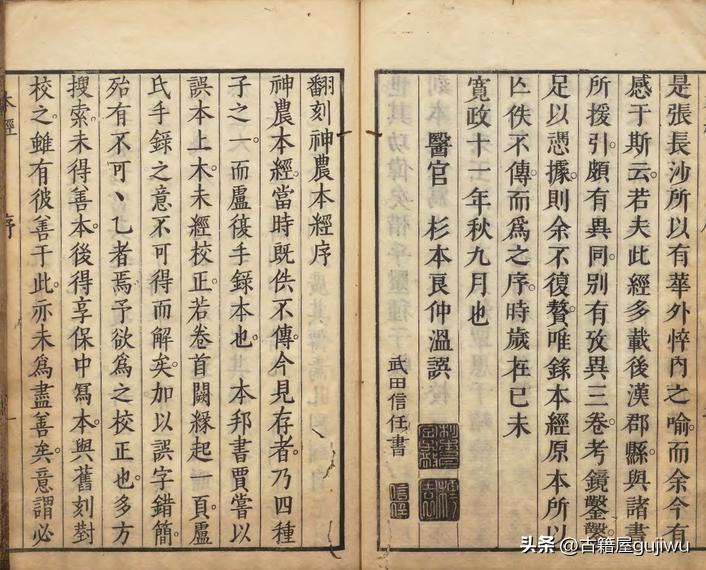 是張長沙所以有華外悴內之喻而余今有
感于斯云若夫此經多載後漢郡縣與諸書
所援引頗有異同別有攷異三卷考鏡鑿鑿
足以憑據則余不復贅唯錄本經原本所以
亾佚不傳而爲之序時歲在己未
寬政十一年秋九月也
醫官 杉本良仲溫誤
武田信任書
翻刻神農本經序
神農本經當時既佚不傳今見存者乃四種
子之一而盧復手錄本也本邦書賈嘗以
誤本上木未經校正若卷首闕緣起一頁盧
氏手錄之意不可得而解矣加以誤字錯簡
殆有不可丶乙者焉予欲爲之校正也多方
搜索未得善本後得享保中寫本與舊刻對
校之雖有彼善于此亦未爲盡善矣意謂必
本經 序
头条 @古籍屋gujiwu